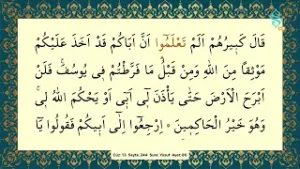 قَالَ كَبِيرُهُمْ اَلَمْ تَعْلَمُٓوا اَنَّ اَبَاكُمْ قَدْ اَخَذَ عَلَيْكُمْ
مَوْثِقًا مِنَ اللّٰهِ وَمِنْ قَبْلُ مَا فَرَّطْتُمْ فٖى يُوسُفَۚ فَلَنْ
اَبْرَحَ الْاَرْضَ حَتّٰى يَأْذَنَ لٖٓى اَبٖٓى اَوْ يَحْكُمَ اللّٰهُ لٖىۚ
وَهُوَ خَيْرُ الْحَاكِمٖينَ ۞ اِرْجِعُٓوا اِلٰٓى اَبٖيكُمْ فَقُولُوا يَٓا
Cüz 13 Sayfa 244 Sure Yusuf Ayet 80